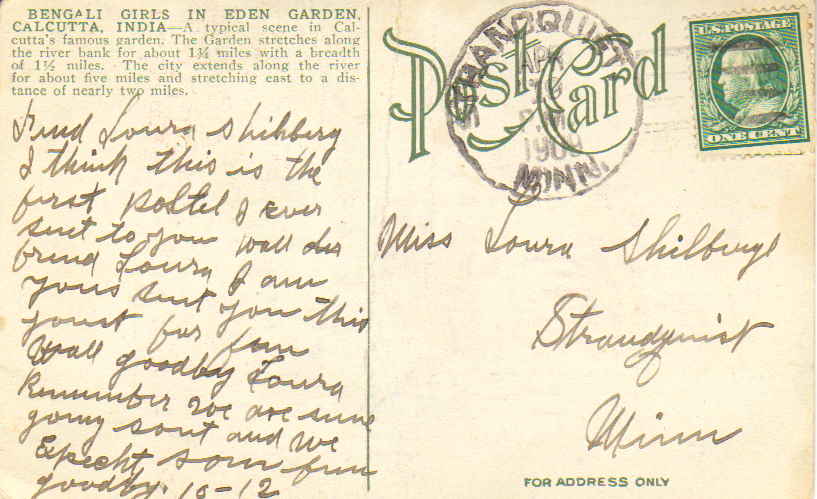 BENGALI GIRLS IN EDEN GARDEN,
CALCUTTA, INDIA—A typical scene in Cal-
cutta's famous garden. The Garden stretches along
the river bank for about 1¾ miles with a breadth
of 1½ miles. The city extends along the river
for about five miles and stretching east to a dis-
tance of nearly two miles.
Frend Loura Shilberg
I think this is the
first postel I ever
sent to you wall der
frend Loura I am
yous sent you this
joust for fun
Wall goodby Loura
Remember we are sure
going sout and we
Expecht som fun
goodby. 10-12
Post Card
STRANDQUIST
APR
1909
MINN.
U.S. POSTAGE
ONE CENT
Miss Loura Shilberge
Strandquist
Minn
FOR ADDRESS ONLY